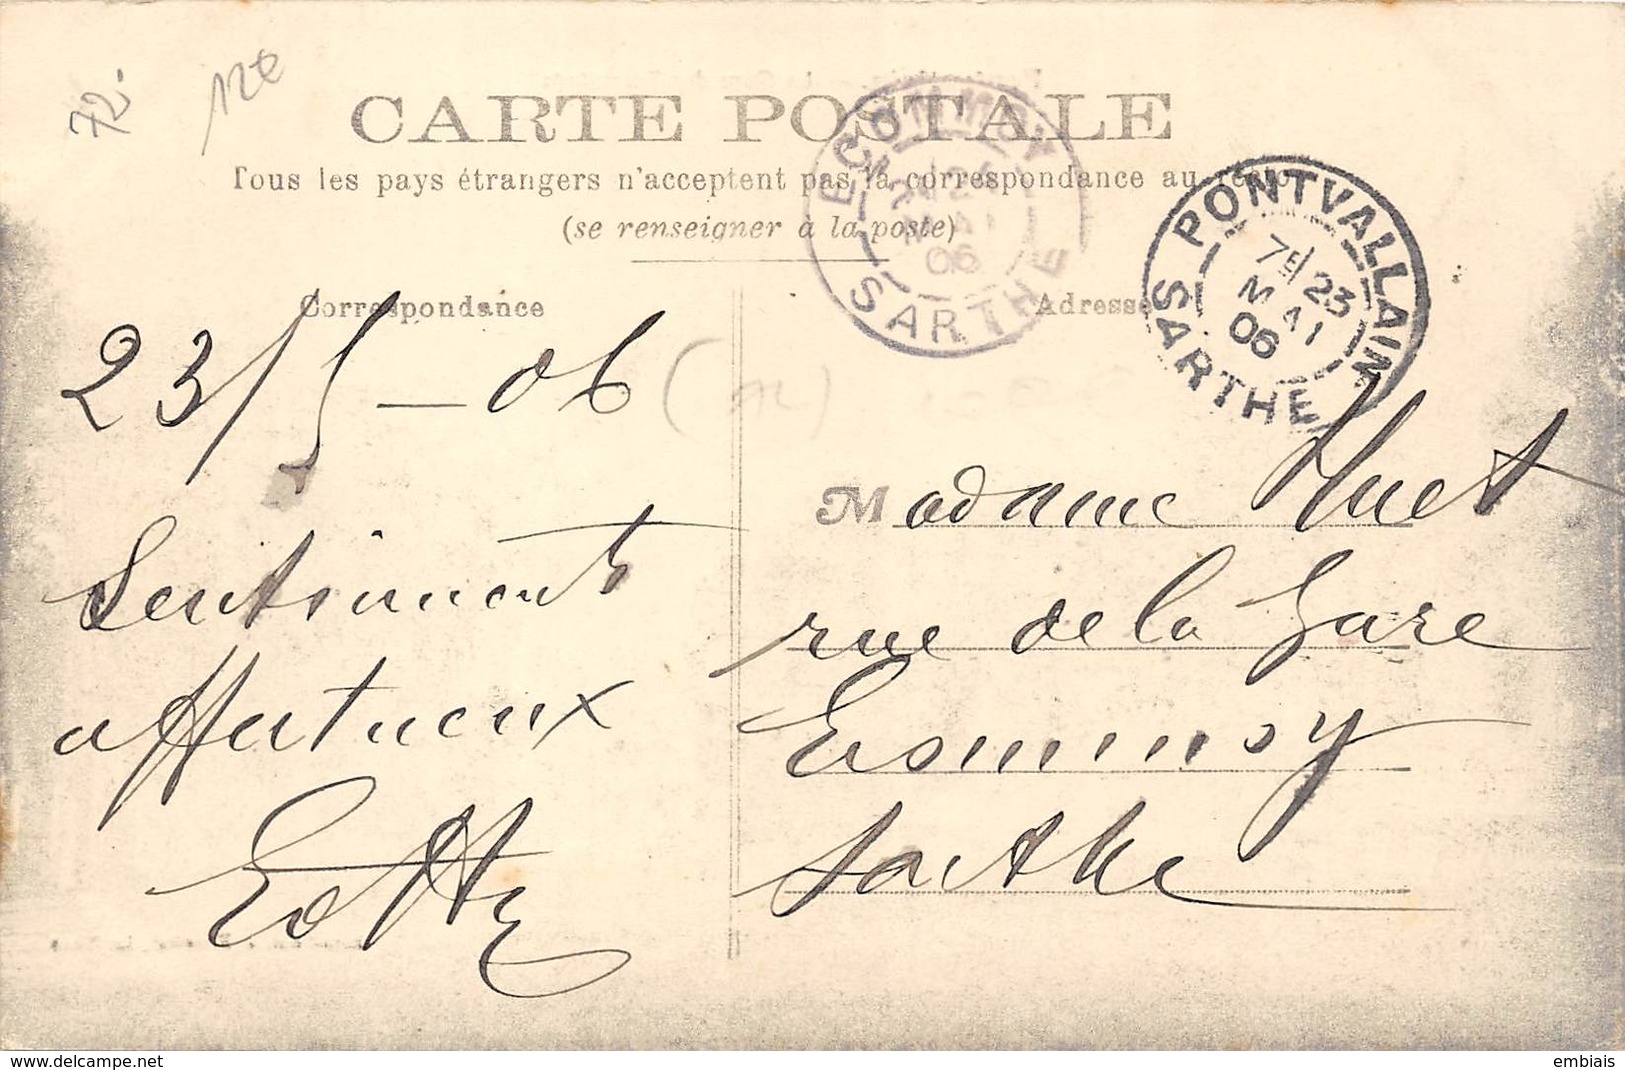 72.
12€
CARTE POSTALE
Tous les pays étrangers n'acceptent pas la correspondance au recto
(se renseigner à la poste)
ECOMMOY
06
SARTHE
PONTVALLAIN
7E/23
MAI
06
SARTHE
Correspondance
Adresse
23/5 - 06
(72)
Sentiments
affectueux
Madame Huet
rue de la Gare
Ecommoy
Sarthe
delcampe.net
embiais